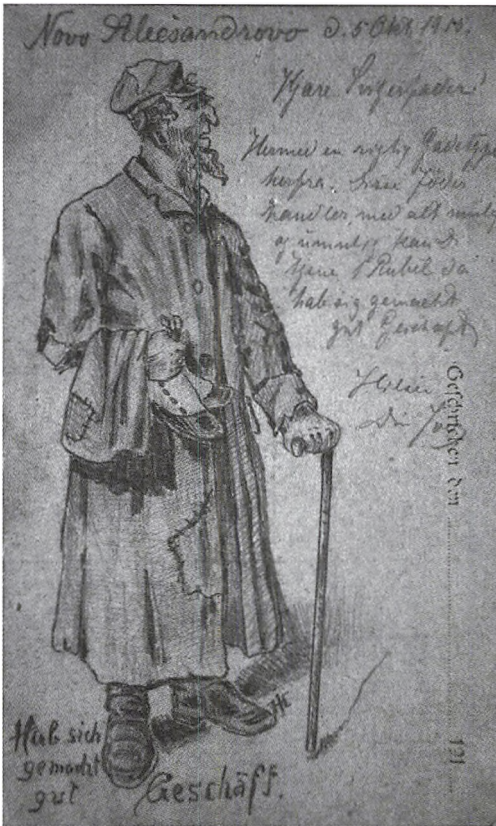 Novo Alecsandrovo d. 5 Okt
Kjære Svigerfader!
Hermed en rigtig Gadetype
herfra. Jöder
handler med alt muligt
og umuligt kan de
tjene 1 Rubel da
hab sig gemacht
gut Geschäft
Hilsen
Geschrieben den
191
Hab sich
gemacht
gut Geschäff.